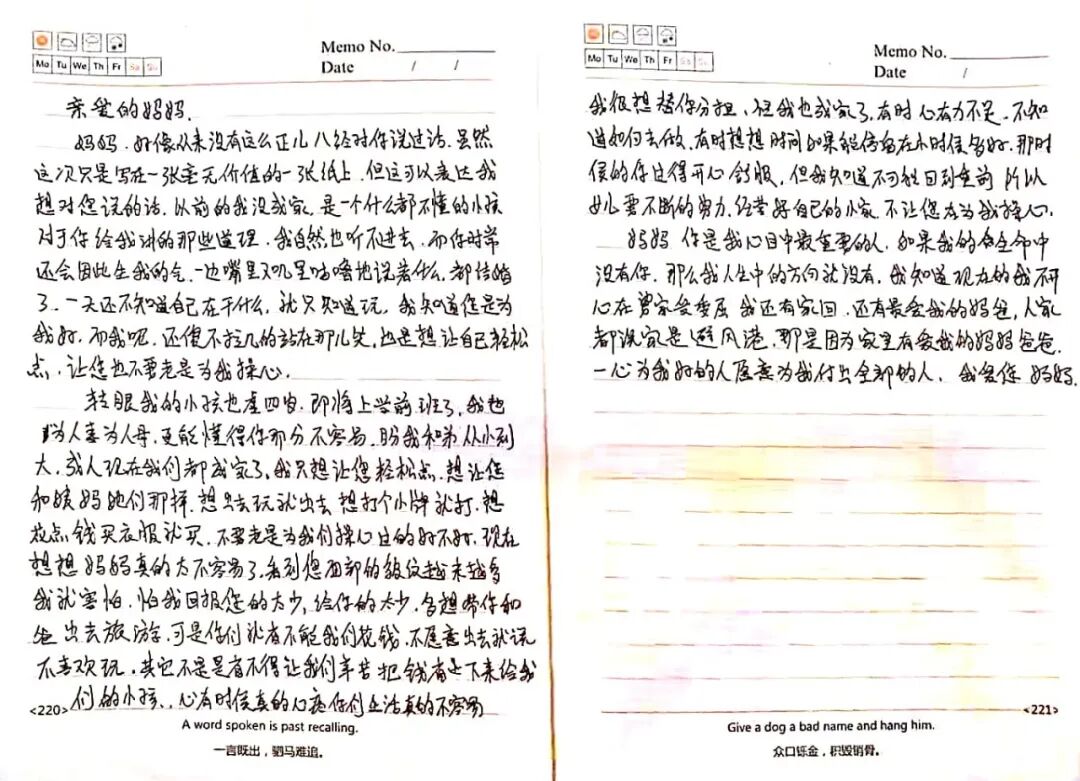 Memo No.
Date / /
Mo Tu We Th Fr Sa Su
亲爱的妈妈.
妈妈.好像从来没有这么正儿八经对你说过话.虽然
这次只是写在一张毫无价值的一张纸上.但这可以表达我
想对您说的话.以前的我没成家.是一个什么都不懂的小孩
对于你给我讲的那些道理.我自然也听不进去.而你时常
还会因此生我的气.一边嘴里又叽里咕噜地说着什么.都结婚
了.一天还不知道自己在干什么.就只知道玩.我知道您是为
我好.而我呢.还傻不拉几的站在那儿笑,也是想让自己轻松
点.让您也不要老是为我操心.
转眼我的小孩也虚四岁.即将上学前班了,我想
为人妻为人母.更能懂得你那分不容易.盼我和弟从小到
大.成人现在我们都成家了.我只想让您轻松点.想让您
和姨妈她们那样.想出去玩就出去 想打个小牌就打.想
花点钱买衣服就买.不要老是为我们操心过的好不好.现在
想想妈妈真的太不容易了.看到您面部的皱纹越来越多
我就害怕.怕我回报您的太少,给你的太少.多想带你和
爸出去旅游.可是你们就舍不能我们花钱.不愿意出去就说
不喜欢玩.其它不是是舍不得让我们辛苦把钱省下来给我
们的小孩.心有时候真的心疼你们生活真的不容易
<220>
A word spoken is past recalling.
一言既出，驷马难追。
Memo No.
Date /
Mo Tu We Th Fr Sa Su
我很想替你分担、但我也成家了.有时心有力不足.不知
道如何去做.有时想想时间如果能停留在小时候多好.那时
候的你过得开心舒服.但我知道不可能回到重前 所以
女儿要不断的努力.经营好自己的小家.不让您在为我操心.
妈妈 你是我心目中最重要的人.如果我的生命中
没有你.那么我人生中的方向就没有.我知道现在的我不开
心在曾家受委屈 我还有家回.还有最爱我的妈爸,人家
都说家是避风港.那是因为家里有爱我的妈妈爸爸.
一心为我好的人愿意为我付出全部的人.我爱你 妈妈.
<221>
Give a dog a bad name and hang him.
众口铄金，积毁销骨。